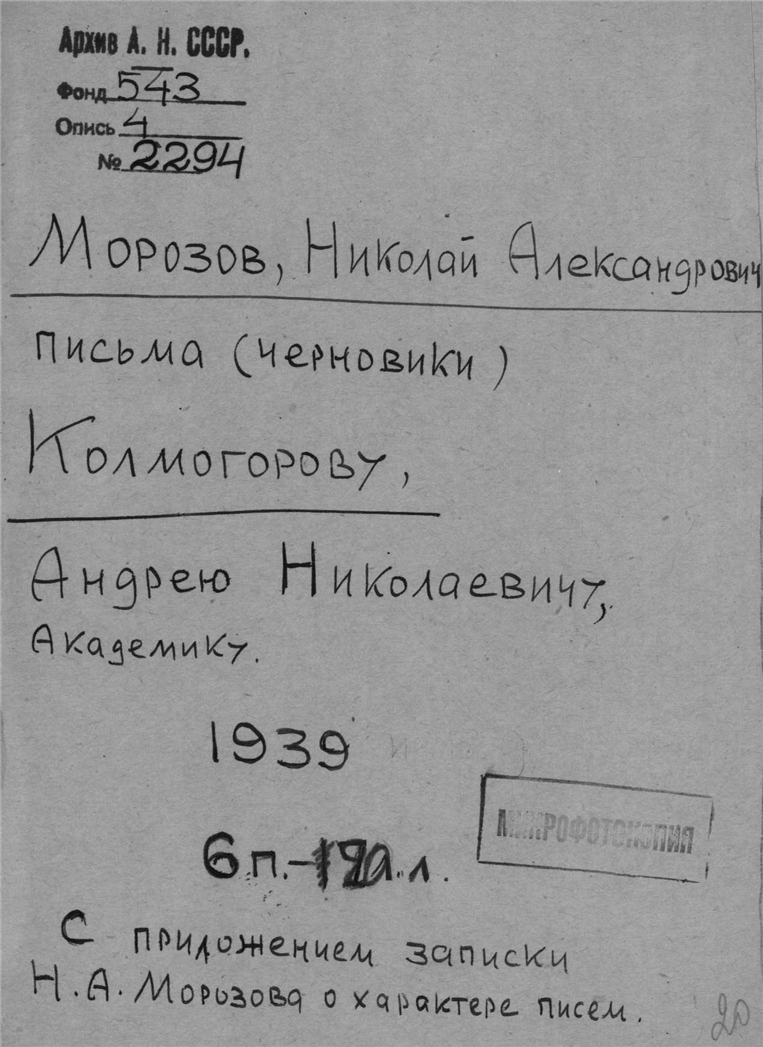 Архив А. Н. СССР.
Фонд 543
Опись 4
№ 2294
Морозов, Николай Александрович
письма (черновики)
Колмогорову,
Андрею Николаевичу,
Академику.
1939
МИКРОФОТОКОПИЯ
6 п. - л.
С приложением записки
Н.А. Морозова о характере писем.
20